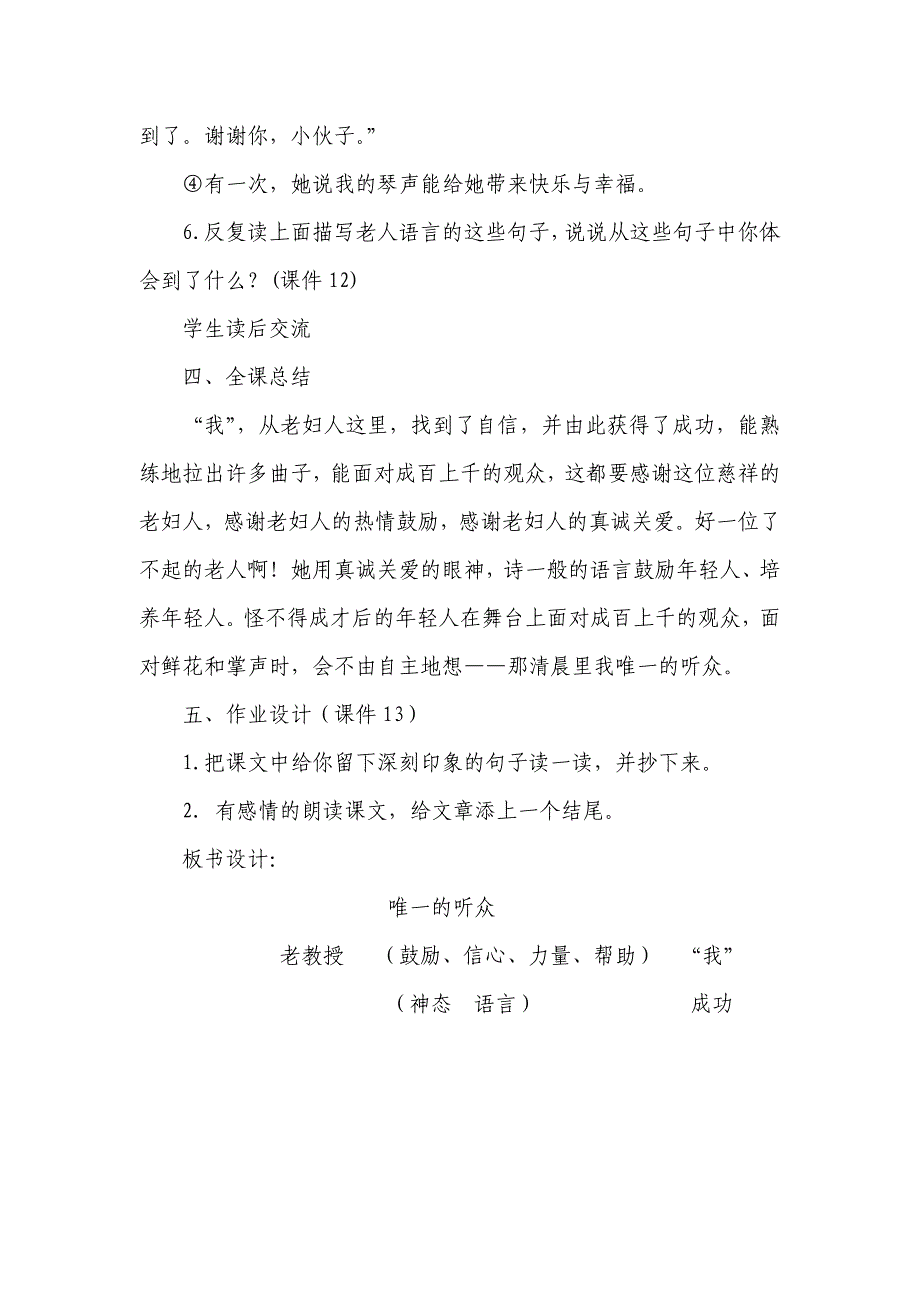 到了。谢谢你，小伙子。”
④有一次，她说我的琴声能给她带来快乐与幸福。
6.反复读上面描写老人语言的这些句子，说说从这些句子中你体
会到了什么？(课件12)
学生读后交流
四、全课总结
“我”，从老妇人这里，找到了自信，并由此获得了成功，能熟
练地拉出许多曲子，能面对成百上千的观众，这都要感谢这位慈祥的
老妇人，感谢老妇人的热情鼓励，感谢老妇人的真诚关爱。好一位了
不起的老人啊！她用真诚关爱的眼神，诗一般的语言鼓励年轻人、培
养年轻人。怪不得成才后的年轻人在舞台上面对成百上千的观众，面
对鲜花和掌声时，会不由自主地想——那清晨里我唯一的听众。
五、作业设计（课件13）
1.把课文中给你留下深刻印象的句子读一读，并抄下来。
2. 有感情的朗读课文，给文章添上一个结尾。
板书设计：
唯一的听众
老教授 （鼓励、信心、力量、帮助） “我”
（神态 语言） 成功